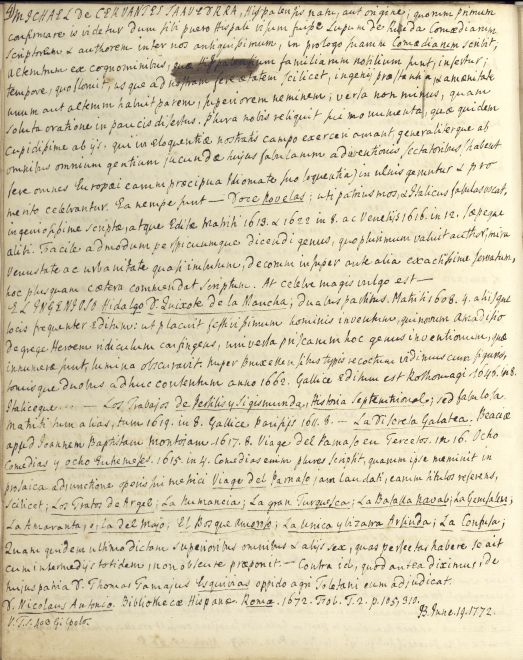 MICHAEL De CERVANTES SAAVEDRA, Hispalensis natu, aut origine; quorum primum
confirmare is videtur dum sibi puero Hispali visum fuisse Lupum de Rueda Comœdiarum
scriptorem & authorem inter nos antiquissimum, in prologo suarum Comœdiarum scribit,
alterutrum ex cognominibus, quæ Hispalensium familiarum nobilium sunt, insertur;
tempore, quo floruit, usque ad nostram fere ætatem scilicet, ingenij præstantia & amœnitate
unum aut alterum habuit parem, superiorem neminem; versa non minus, quam
soluta oratione in paucis disertus. Plura nobis reliquit sui monumenta, quæ quidem
cupidissime ab ijs, qui in eloquentiæ nostratis campo exerceri amant, generaliterque ab
omnibus omnium gentium jucundæ hujus fabularum adinventionis sectatoribus (habent
fere omnes Europæi earum præcipua Idiomate suo loquentia) in ulnis geruntur & pro
merito celebrantur. Ea nempe sunt — Doce Novelas; uti patrius mos, & Italicus fabulas vocat,
ingeniosissime scriptæ, atque Editæ Matriti 1613. & 1622 in 8. ac Venetijs 1616. in 12, sæpeque
alibi. Facile admodum perspicuumque dicendi genus, quo plurimum valuit author, mira
venustate ac urbanitate quasi imbutum, decorum insuper ante alia exactissime servatum,
hoc plusquam cætera commendat scriptum. At celebre magis vulgo est —
EL INGENIOSO Hidalgo D. Quixote de la Mancha; duabus partibus. Matriti 1608. 4. alijsque
locis frequenter Editum: ut placuit festivissimum hominis inventum, quo novum Amadisio
de grege Heroem ridiculum confingens, universa priscarum hoc genus inventionum, quæ
innumeræ sunt, lumina obscuravit. Nuper Bruxellensibus typis recoctum vidimus cum figuris,
tomisque duobus adhuc contentum anno 1662. Gallice Editum est Rothomagi 1646. 4. 8.
Italiceque .... — Los Trabajos de Persiles y Sigismunda, Historia Septentrional; sed fabulosa
Matriti cum alias, tum 1619. in 8. Gallice Parisijs 1618. — La Discreta Galatea. Beatiæ
apud Joannem Baptistam Montojam 1617. 8. Viage del Parnaso en Tercetos. in 16. Ocho
Comedias y ocho Entremeses. 1615. in 4. Comedias enim plures scripsit, quarum ipse meminit in
prosaica adjunctione operis sui metrici Viage del Parnaso jam laudati, earum titulos referens,
scilicet; Los Tratos de Argel; La Numancia; La gran Turquesca; La Batalla Naval; La Gerusalen;
La Amaranta, o; La del Mayo; El Bosque Amoroso; La Unica y bizarra Arsinda; La Confusa;
Quam quidem ultimo dictam superioribus omnibus & alijs sex, quas perfectas habere se ait
cum intermedijs totidem, non obscure præponit. — Contra id, quod antea diximus, de
hujus patria D. Thomas Tamajus Esquivias oppido agri Toletani eum adjudicat.
D. Nicolaus Antonio. Bibliothecæ Hispanæ. Romæ. 1672.
B. June. 19. 1772.